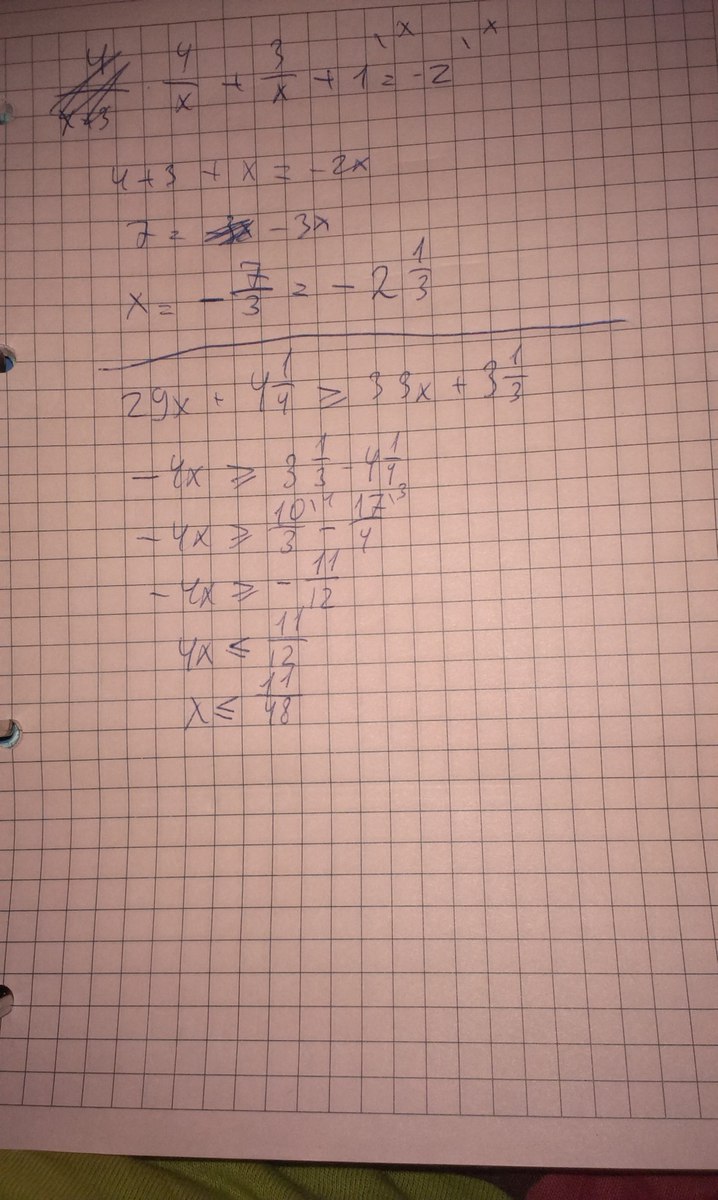 4/x + 3/x + 1 \ˣ = -2 \ˣ
4 + 3 + x = - 2x
7 = - 3x
x = - 7/3 = - 2 1/3
29x + 4 1/4 ≥ 33x + 3 1/3
- 4x ≥ 3 1/3 - 4 1/4
- 4x ≥ 10\⁴/3 - 17\³/4
- 4x ≥ - 11/12
4x ≤ 11/12
x ≤ 11/48